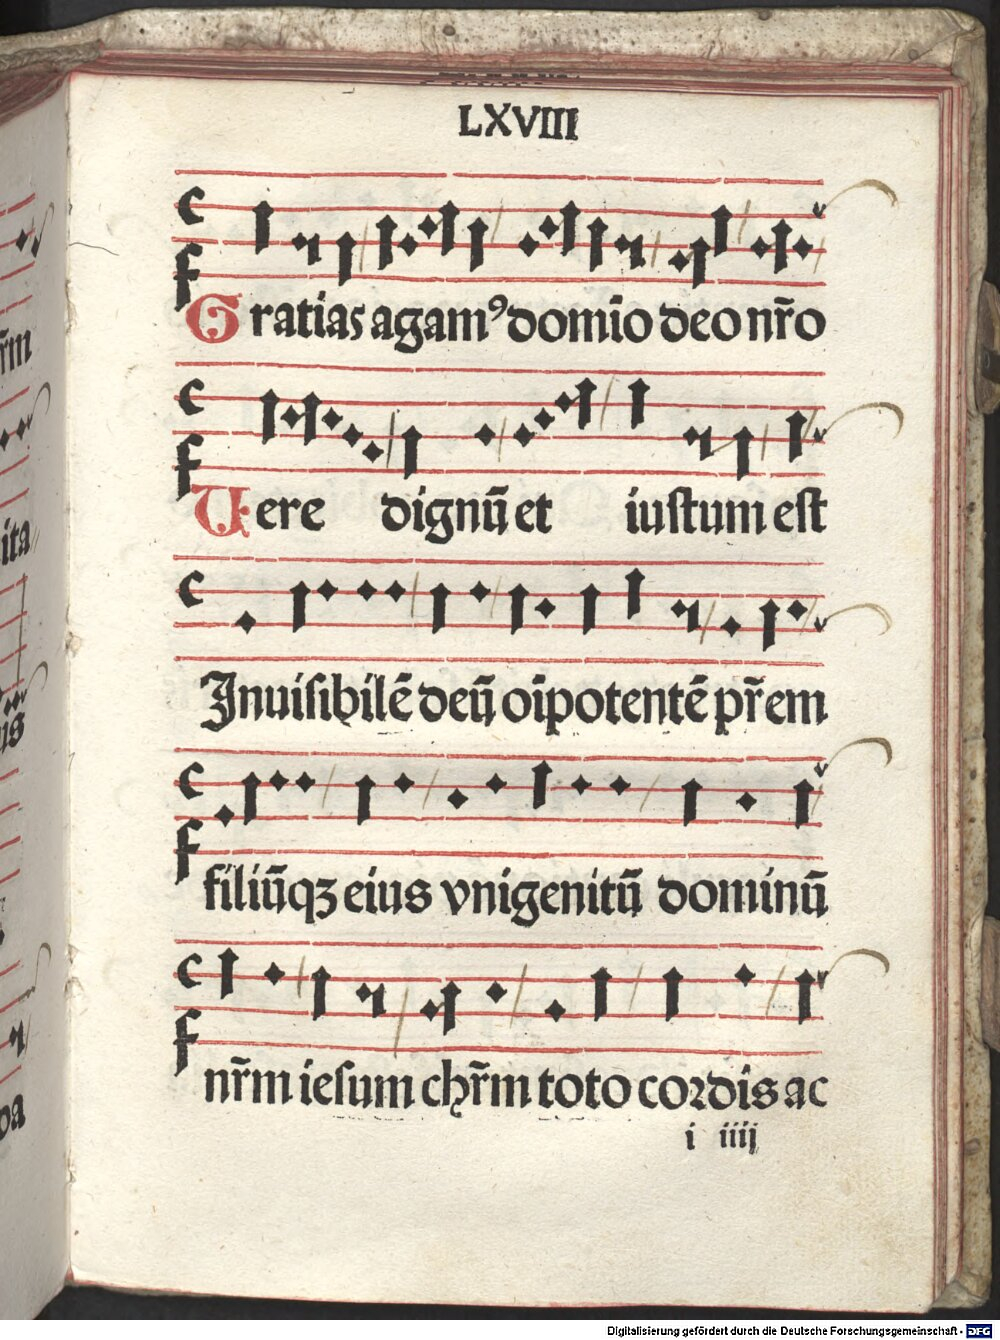 LXVIII
Gratias agamꝰ domīo deo nr̄o
Uere dignū et iustum est
Inuisibilē deū oīpotentē pr̄em
filiūqꝫ eius vnigenitū dominū
nr̄m iesum chr̄m toto cordis ac
i iiij
Digitalisierung gefördert durch die Deutsche Forschungsgemeinschaft - DFG